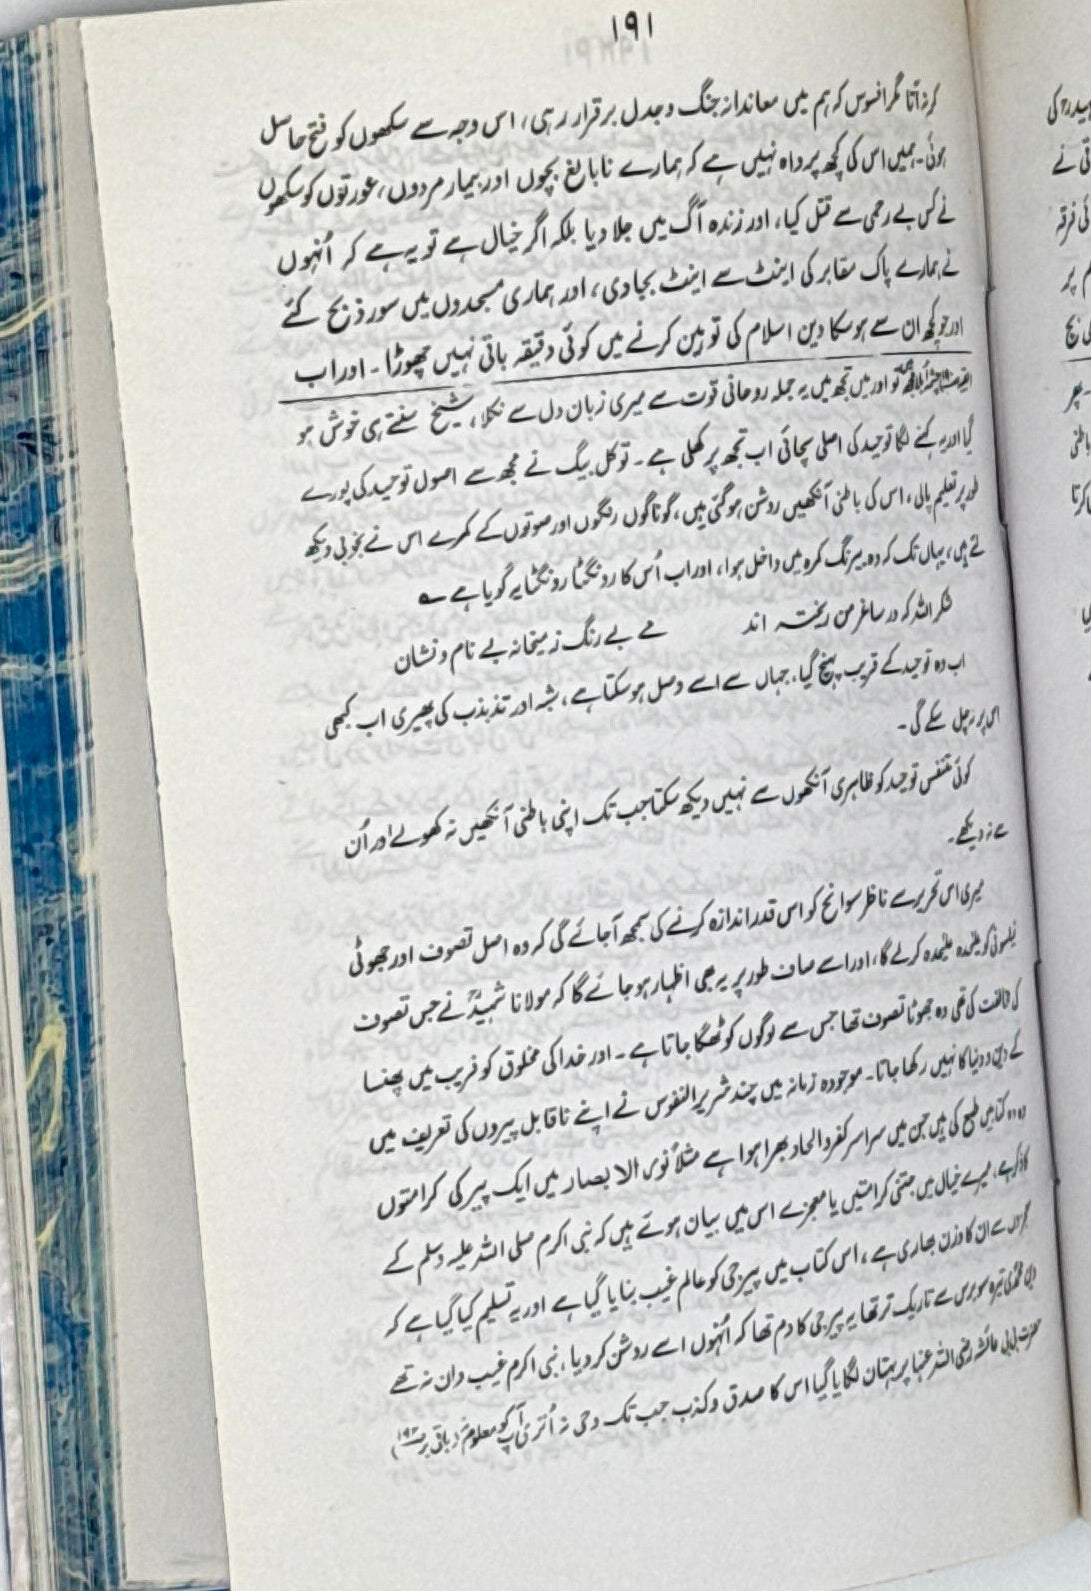 ۱۹۱
کر نہ آتا مگر افسوس کہ ہم میں معاندانہ جنگ و جدل برقرار رہی، اس وجہ سے سکھوں کو فتح حاصل
ہوئی۔ ہمیں اس کی کچھ پرواہ نہیں ہے کہ ہمارے نابالغ بچوں اور بیمار مردوں، عورتوں کو سکھوں
نے کس بے رحمی سے قتل کیا، اور زندہ آگ میں جلا دیا بلکہ اگر خیال ہے تو یہ ہے کہ اُنہوں
نے ہمارے پاک مقابر کی اینٹ سے اینٹ بجا دی، اور ہماری مسجدوں میں سور ذبح کئے
اور جو کچھ ان سے ہو سکا دین اسلام کی توہین کرنے میں کوئی دقیقہ باقی نہیں چھوڑا۔ اور اب
تو اور میں تجھ میں یہ جملہ روحانی قوت سے میری زبان دل سے نکلا، شیخ سنتے ہی خوش ہو
گیا اور یہ کہنے لگا توحید کی اصلی سچائی اب تجھ پر کھلی ہے۔ توکل بیگ نے مجھ سے اصول توحید کی پورے
طور پر تعلیم پالی، اس کی باطنی آنکھیں روشن ہو گئی ہیں، گوناگوں رنگوں اور صوتوں کے کمرے اس نے بخوبی دیکھ
لئے ہیں، یہاں تک کہ وہ بیرنگ کمرہ میں داخل ہوا، اور اب اُس کا رونگٹا رونگٹا یہ گویا ہے ؎
شکر اللہ کہ در ساغر من ریختہ اند مے بے رنگ ز میخانہ بے نام و نشان
اب وہ توحید کے قریب پہنچ گیا، جہاں سے اسے وصل ہو سکتا ہے، شبہ اور تذبذب کی چھیری اب کبھی
اس پر نہ چل سکے گی۔
کوئی متنفس توحید کو ظاہری آنکھوں سے نہیں دیکھ سکتا جب تک اپنی باطنی آنکھیں نہ کھولے اور اُن
سے نہ دیکھے۔
میری اس تحریر سے ناظر سوانح کو اس قدر اندازہ کرنے کی سمجھ آ جائے گی کہ وہ اصل تصوف اور جھوٹی
فیلسوفی کو علیحدہ علیحدہ کر لے گا، اور اسے صاف طور پر یہ بھی اظہار ہو جائے گا کہ مولانا شہیدؒ نے جس تصوف
کی مخالفت کی تھی وہ جھوٹا تصوف تھا جس سے لوگوں کو ٹھگا جاتا ہے۔ اور خدا کی مخلوق کو فریب میں پھنسا
کے دین و دنیا کا نہیں رکھا جاتا۔ موجودہ زمانہ میں چند شریر النفوس نے اپنے ناقابل پیروں کی تعریف میں
وہ وہ کتابیں طبع کی ہیں جن میں سراسر کفر و الحاد بھرا ہوا ہے مثلاً نوری الابصار میں ایک پیر کی کرامتوں
کا ذکر ہے، میرے خیال میں جتنی کرامتیں یا معجزے اس میں بیان ہوئے ہیں کہ نبی اکرم صلی اللہ علیہ وسلم کے
معجزوں سے ان کا وزن بھاری ہے، اس کتاب میں پیرجی کو عالم غیب بنایا گیا ہے اور یہ تسلیم کیا گیا ہے کہ
دین محمدی تیرہ سو برس سے تاریک تر تھا یہ پیرجی کا دم تھا کہ اُنہوں اسے روشن کر دیا، نبی اکرم غیب دان نہ تھے
حضرت بی بی عائشہ رضی اللہ عنہا پر بہتان لگایا گیا اس کا صدق و کذب جب تک وحی نہ اُتری آپ کو معلوم نہ (باقی بر ص۱۹۲)